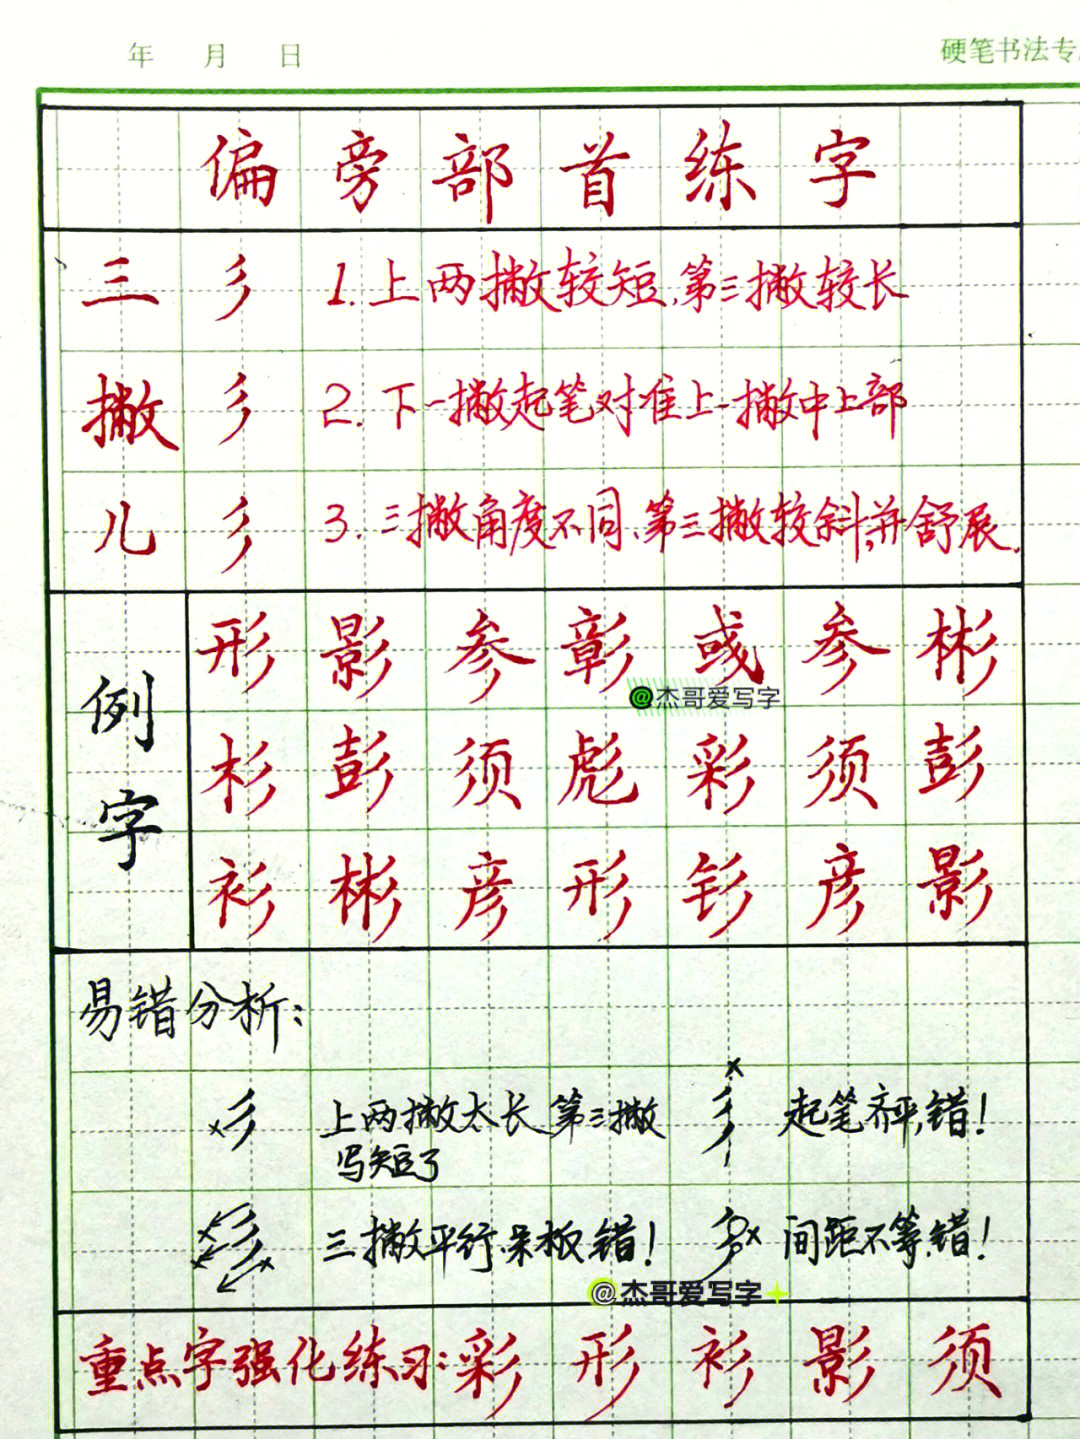 年 月 日
硬笔书法专
偏旁部首练字
三 彡 1.上两撇较短,第三撇较长
撇 彡 2.下一撇起笔对准上一撇中上部
儿 彡 3.三撇角度不同,第三撇较斜,并舒展.
例字
形 影 参 彰 彧 参 彬
@杰哥爱写字
杉 彭 须 彪 彩 须 彭
衫 彬 彦 形 钐 彦 影
易错分析:
×彡 上两撇太长 第三撇
写短了
× 彡 起笔齐平,错!
彡 三撇平行,呆板,错!
彡× 间距不等,错!
@杰哥爱写字
重点字强化练习:彩 形 衫 影 须